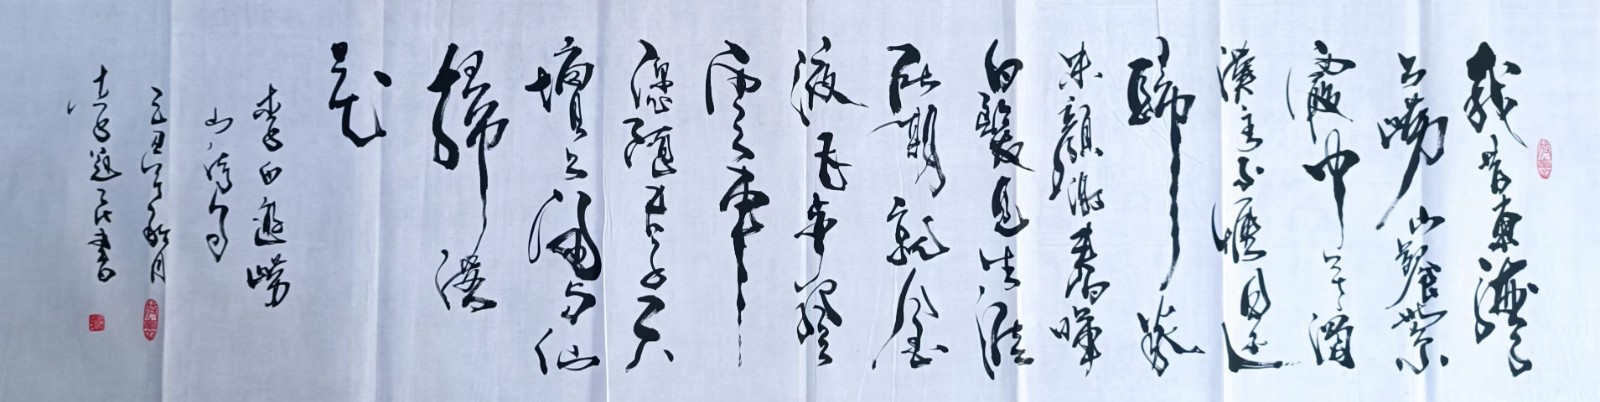 我昔東海
上嶗山餐紫
霞中年謁
漢主不愜還
歸家
朱顏謝春暉
白髮見生涯
所期就金
液飛步登
雲車
願隨夫子天
壇上閑與仙
掃落
花
李白遊嶗
山詩句
丑年秋月
書